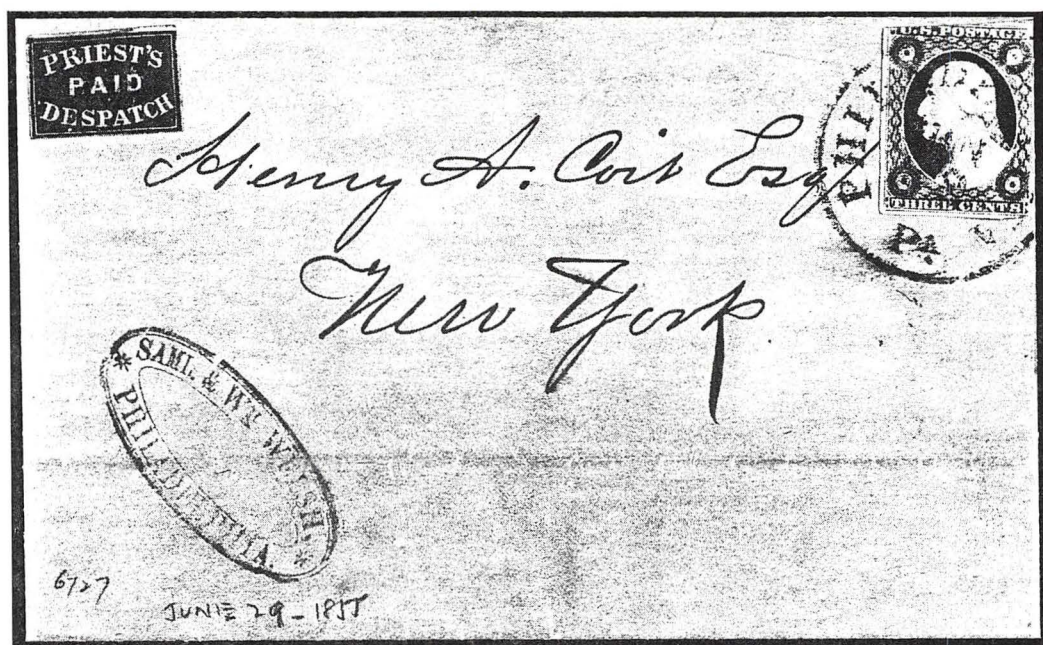 PRIEST'S
PAID
DESPATCH
U.S. POSTAGE
THREE CENTS
PA
Henry A. Coit Esq
New York
* SAML. & WM. WELSH, *
PHILADELPHIA.
6/27
JUNE 29-1855